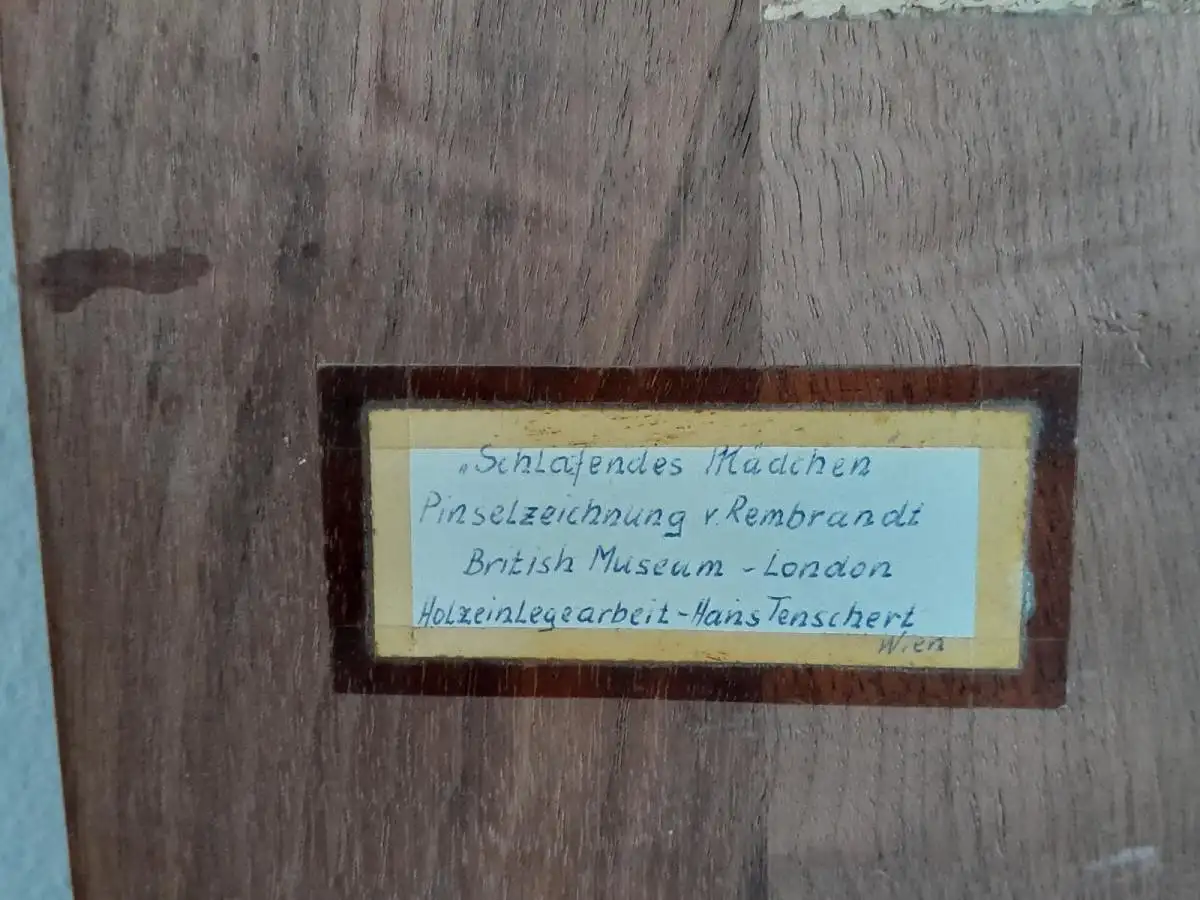 „Schlafendes Mädchen
Pinselzeichnung v. Rembrandt
British Museum - London
Holzeinlegearbeit - Hans Tenschert
Wien